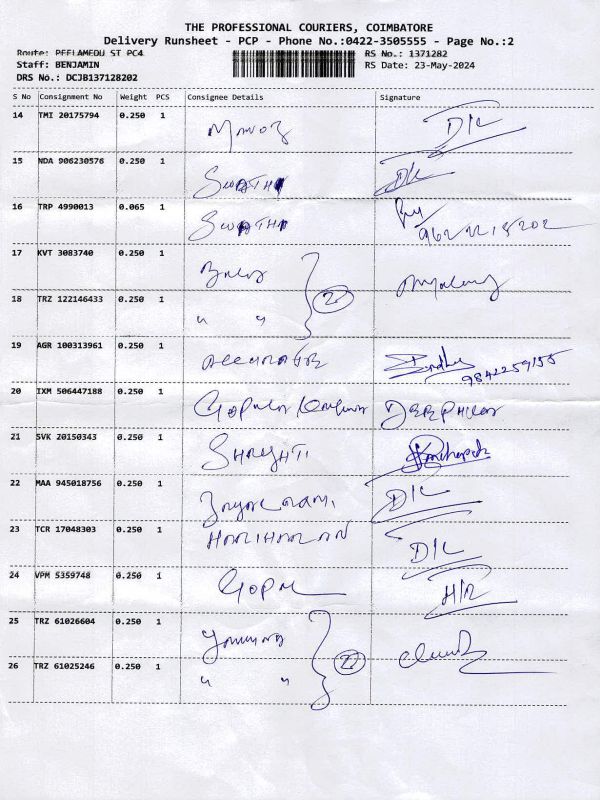 THE PROFESSIONAL COURIERS, COIMBATORE
Delivery Runsheet - PCP - Phone No.:0422-3505555 - Page No.:2
Route: PEELAMEDU ST PC4 RS No.: 1371282
Staff: BENJAMIN RS Date: 23-May-2024
DRS No.: DCJB137128202
S No Consignment No Weight PCS Consignee Details Signature
14 TMI 20175794 0.250 1 Manoj D/C
15 NDA 906230576 0.250 1 SWATHI D/C
16 TRP 4990013 0.065 1 SWATHI
17 KVT 3083740 0.250 1
18 TRZ 122146433 0.250 1 " " 2
19 AGR 100313961 0.250 1 Sindhu
9842259155
20 IXM 506447188 0.250 1 GOPAL
21 SVK 20150343 0.250 1 SHRISHTI
22 MAA 945018756 0.250 1 D/C
23 TCR 17048303 0.250 1 HARIHARAN D/C
24 VPM 5359748 0.250 1 GOPAL H/R
25 TRZ 61026604 0.250 1
26 TRZ 61025246 0.250 1 " " 2